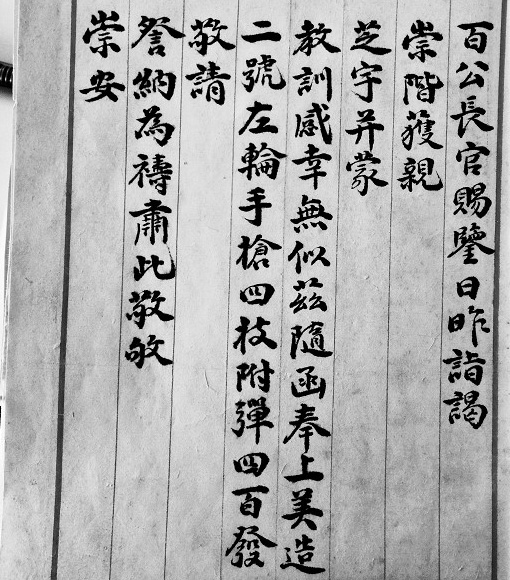 百公長官賜鑒日昨詣謁
崇階獲親
芝宇并蒙
教訓感幸無似茲隨函奉上美造
二號左輪手槍四枝附彈四百發
敬請
詧納為禱肅此敬敂
崇安